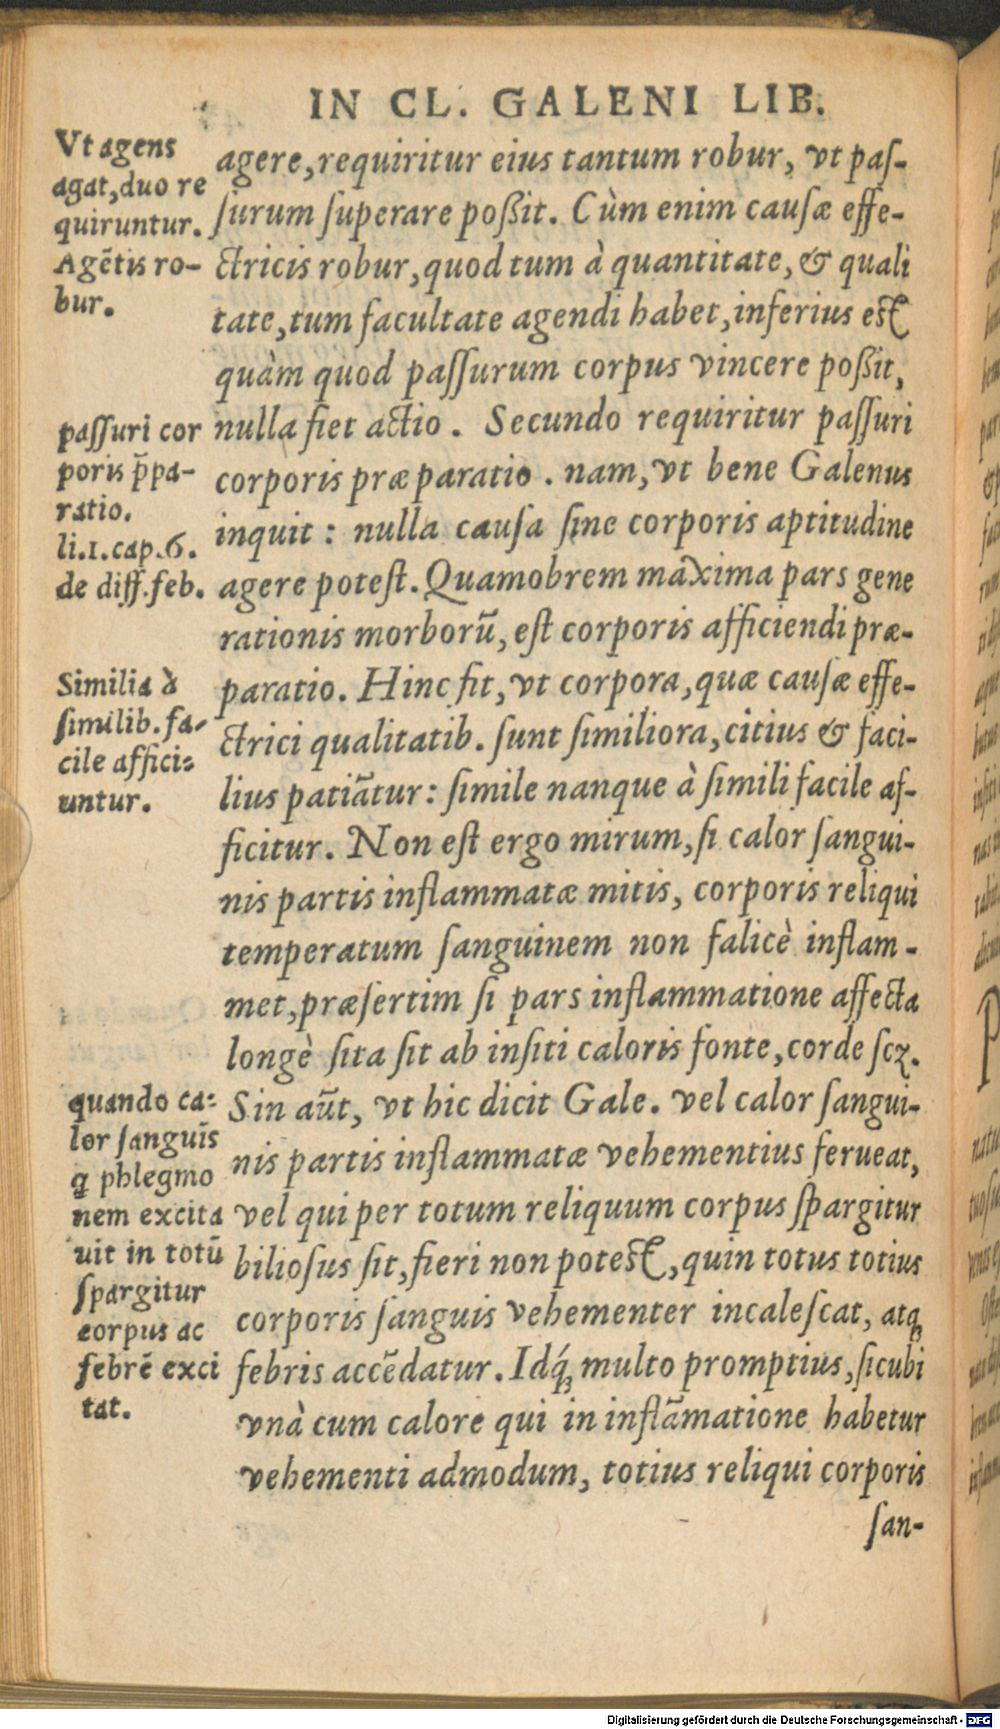 IN CL. GALENI LIB.
Vt agens
agat,duo re
quiruntur.
Agẽtis ro-
bur.
passuri cor
poris p̃pa-
ratio.
li.1.cap.6.
de diff.feb.
Similia à
similib.fa-
cile affici-
untur.
quando ca-
lor sanguĩs
q̃ phlegmo
nem excita
uit in totũ
spargitur
corpus ac
febrẽ exci
tat.
agere,requiritur eius tantum robur, vt pas-
surum superare poßit. Cùm enim causæ effe-
ctricis robur,quod tum à quantitate,& quali
tate,tum facultate agendi habet,inferius est
quàm quod passurum corpus vincere poßit,
nulla fiet actio. Secundo requiritur passuri
corporis præparatio. nam,vt bene Galenus
inquit: nulla causa sine corporis aptitudine
agere potest.Quamobrem maxima pars gene
rationis morborũ,est corporis afficiendi præ-
paratio. Hinc fit,vt corpora,quæ causæ effe-
ctrici qualitatib. sunt similiora,citius & faci-
lius patiãtur: simile nanque à simili facile af-
ficitur. Non est ergo mirum,si calor sangui-
nis partis inflammatæ mitis, corporis reliqui
temperatum sanguinem non falicè inflam-
met,præsertim si pars inflammatione affecta
longè sita sit ab insiti caloris fonte,corde scꝫ.
Sin aũt, vt hic dicit Gale. vel calor sangui-
nis partis inflammatæ vehementius ferueat,
vel qui per totum reliquum corpus spargitur
biliosus sit,fieri non potest,quin totus totius
corporis sanguis vehementer incalescat, atqꝫ
febris accẽdatur. Idq́ꝫ multo promptius,sicubi
vnà cum calore qui in inflãmatione habetur
vehementi admodum, totius reliqui corporis
san-
Digitalisierung gefördert durch die Deutsche Forschungsgemeinschaft - DFG